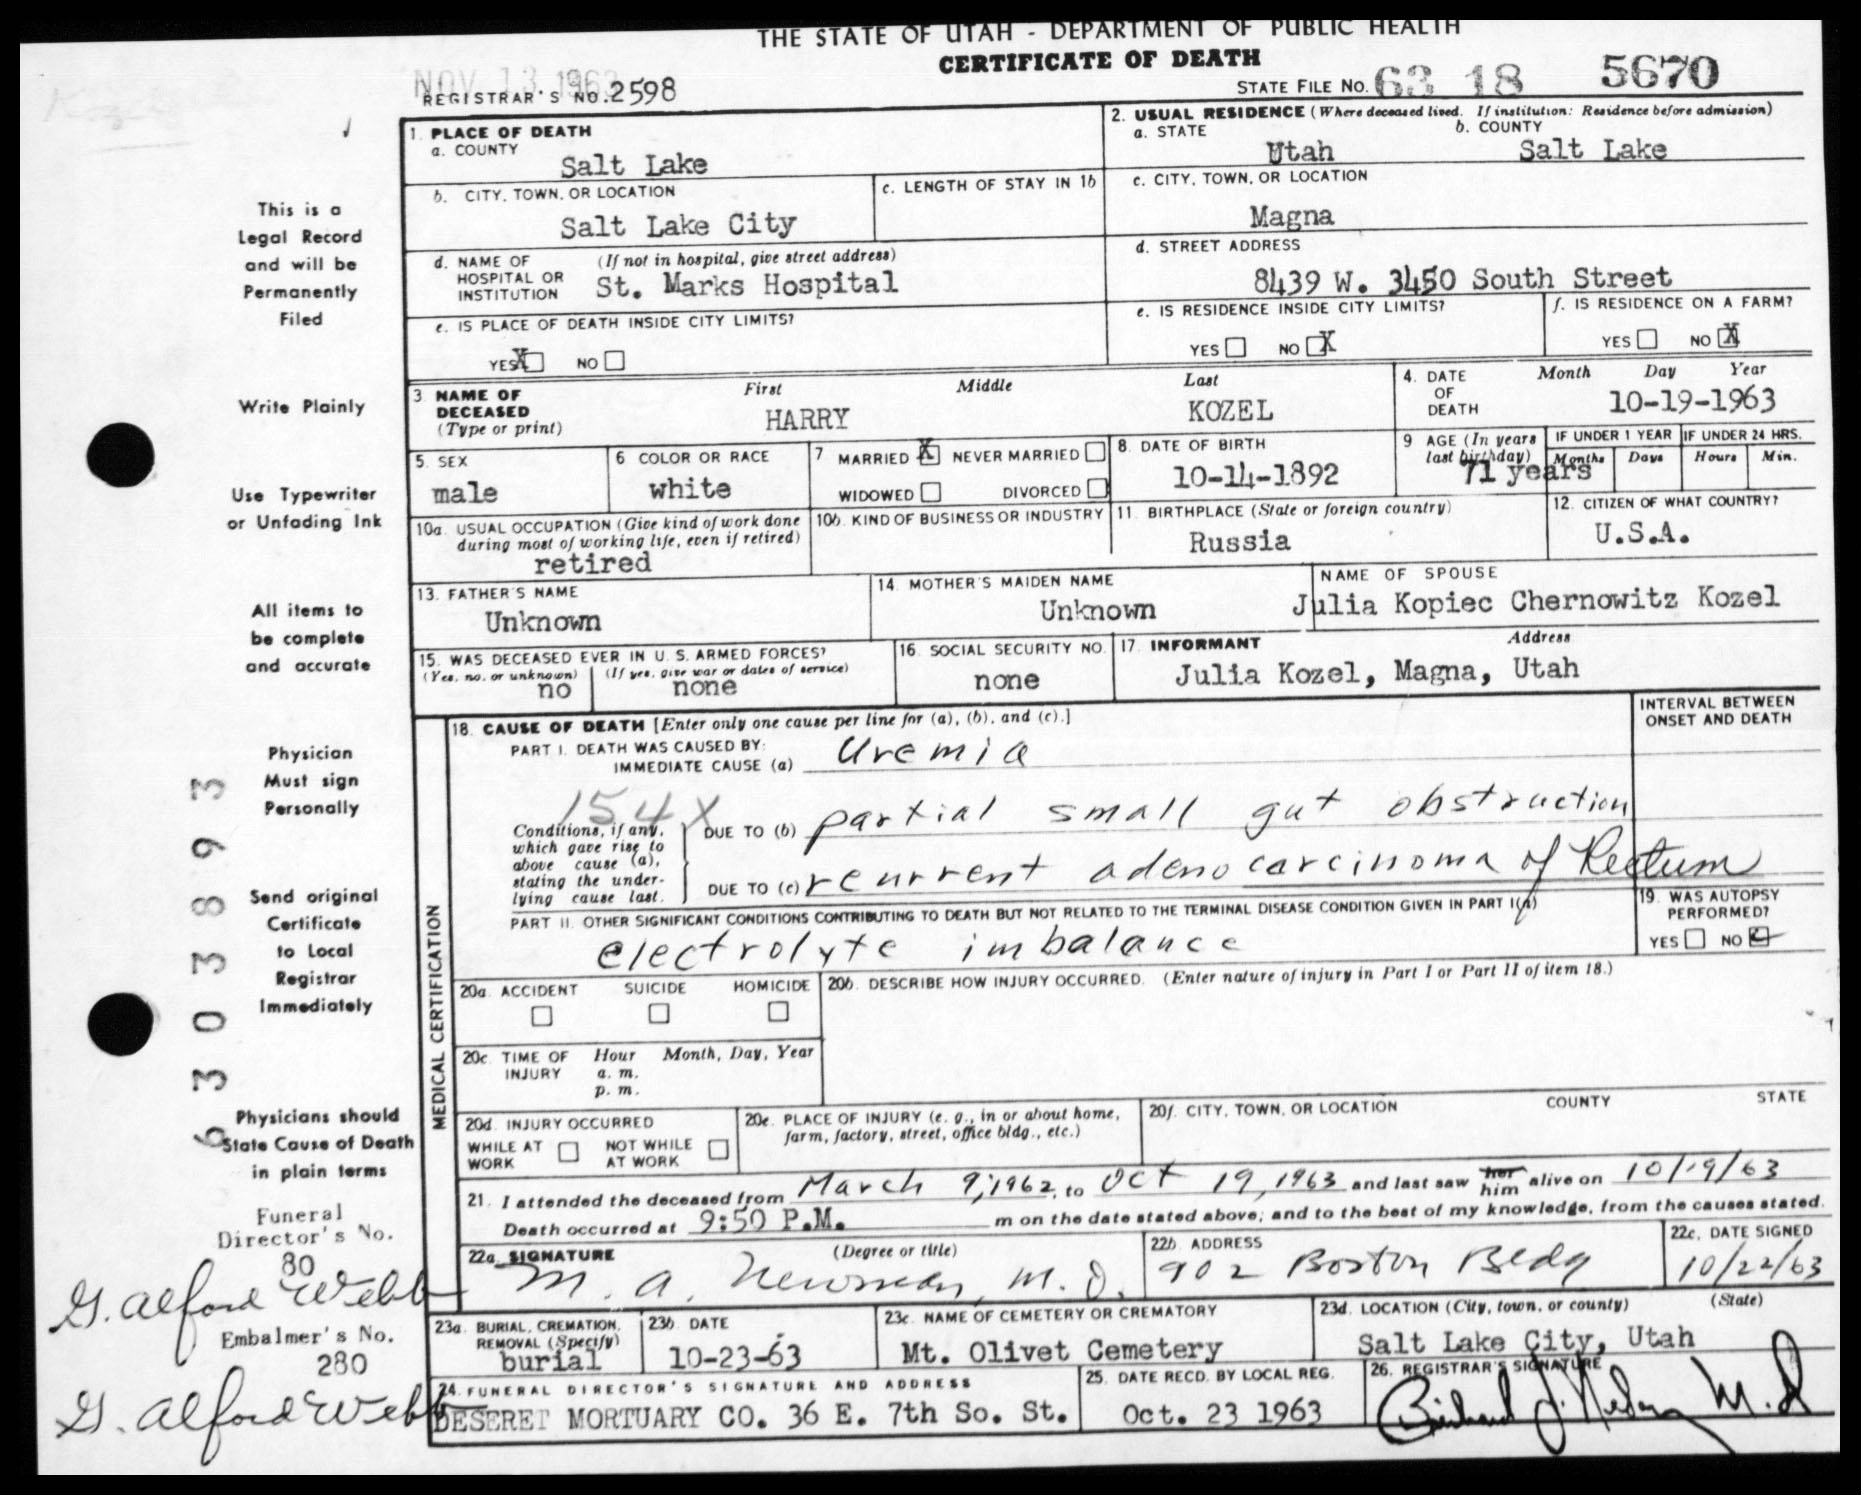 THE STATE OF UTAH - DEPARTMENT OF PUBLIC HEALTH
CERTIFICATE OF DEATH
NOV 13 1963
REGISTRAR'S NO. 2598
STATE FILE NO. 63 18 5670
This is a
Legal Record
and will be
Permanently
Filed
Write Plainly
Use Typewriter
or Unfading Ink
All items to
be complete
and accurate
Physician
Must sign
Personally
Send original
Certificate
to Local
Registrar
Immediately
Physicians should
State Cause of Death
in plain terms
6 3 0 3 8 9 3
Funeral
Director's No.
80
G. Alford Webb
Embalmer's No.
280
G. Alford Webb
1. PLACE OF DEATH
a. COUNTY
Salt Lake
b. CITY, TOWN, OR LOCATION
Salt Lake City
c. LENGTH OF STAY IN 1b
d. NAME OF HOSPITAL OR INSTITUTION (If not in hospital, give street address)
St. Marks Hospital
e. IS PLACE OF DEATH INSIDE CITY LIMITS?
YES X NO
2. USUAL RESIDENCE (Where deceased lived. If institution: Residence before admission)
a. STATE b. COUNTY
Utah Salt Lake
c. CITY, TOWN, OR LOCATION
Magna
d. STREET ADDRESS
8439 W. 3450 South Street
e. IS RESIDENCE INSIDE CITY LIMITS?
YES NO X
f. IS RESIDENCE ON A FARM?
YES NO X
3 NAME OF DECEASED (Type or print)
First Middle Last
HARRY KOZEL
4. DATE OF DEATH Month Day Year
10-19-1963
5. SEX
male
6 COLOR OR RACE
white
7 MARRIED X NEVER MARRIED
WIDOWED DIVORCED
8. DATE OF BIRTH
10-14-1892
9 AGE (In years last birthday)
71 years
IF UNDER 1 YEAR IF UNDER 24 HRS.
Months Days Hours Min.
10a. USUAL OCCUPATION (Give kind of work done during most of working life, even if retired)
retired
10b. KIND OF BUSINESS OR INDUSTRY
11. BIRTHPLACE (State or foreign country)
Russia
12. CITIZEN OF WHAT COUNTRY?
U.S.A.
13. FATHER'S NAME
Unknown
14. MOTHER'S MAIDEN NAME
Unknown
NAME OF SPOUSE
Julia Kopiec Chernowitz Kozel
15. WAS DECEASED EVER IN U. S. ARMED FORCES?
(Yes, no, or unknown) (If yes, give war or dates of service)
no none
16. SOCIAL SECURITY NO.
none
17. INFORMANT Address
Julia Kozel, Magna, Utah
MEDICAL CERTIFICATION
18. CAUSE OF DEATH [Enter only one cause per line for (a), (b), and (c).]
INTERVAL BETWEEN ONSET AND DEATH
PART I. DEATH WAS CAUSED BY:
IMMEDIATE CAUSE (a) Uremia
154X
Conditions, if any, which gave rise to above cause (a), stating the underlying cause last.
DUE TO (b) partial small gut obstruction
DUE TO (c) recurrent adenocarcinoma of Rectum
PART II. OTHER SIGNIFICANT CONDITIONS CONTRIBUTING TO DEATH BUT NOT RELATED TO THE TERMINAL DISEASE CONDITION GIVEN IN PART I(a)
electrolyte imbalance
19. WAS AUTOPSY PERFORMED?
YES NO
20a. ACCIDENT SUICIDE HOMICIDE
20b. DESCRIBE HOW INJURY OCCURRED. (Enter nature of injury in Part I or Part II of item 18.)
20c. TIME OF INJURY Hour Month, Day, Year
a. m.
p. m.
20d. INJURY OCCURRED
WHILE AT WORK NOT WHILE AT WORK
20e. PLACE OF INJURY (e. g., in or about home, farm, factory, street, office bldg., etc.)
20f. CITY, TOWN, OR LOCATION COUNTY STATE
21. I attended the deceased from March 9, 1962, to Oct 19, 1963 and last saw her him alive on 10/19/63
Death occurred at 9:50 P.M. m on the date stated above; and to the best of my knowledge, from the causes stated.
22a. SIGNATURE (Degree or title)
M. A. Newman, M. D.
22b. ADDRESS
902 Boston Bldg
22c. DATE SIGNED
10/22/63
23a. BURIAL, CREMATION, REMOVAL (Specify)
burial
23b. DATE
10-23-63
23c. NAME OF CEMETERY OR CREMATORY
Mt. Olivet Cemetery
23d. LOCATION (City, town, or county) (State)
Salt Lake City, Utah
24. FUNERAL DIRECTOR'S SIGNATURE AND ADDRESS
DESERET MORTUARY CO. 36 E. 7th So. St.
25. DATE RECD. BY LOCAL REG.
Oct. 23 1963
26. REGISTRAR'S SIGNATURE
M.D